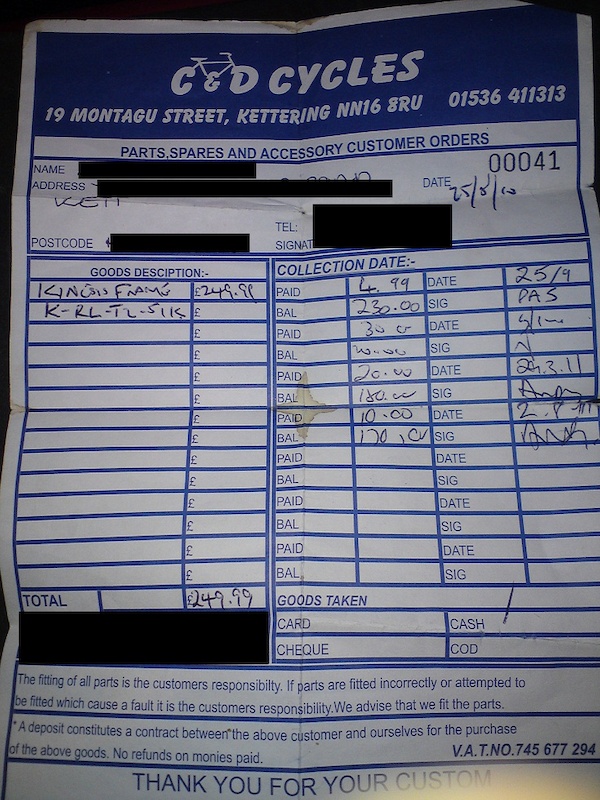 C & D CYCLES
19 MONTAGU STREET, KETTERING NN16 8RU 01536 411313
PARTS,SPARES AND ACCESSORY CUSTOMER ORDERS
NAME 00041
ADDRESS DATE 25/8/10
KETT
TEL:
POSTCODE SIGNAT
GOODS DESCIPTION:- COLLECTION DATE:-
KINESIS FRAME £249.99 PAID 4.99 DATE 25/9
£ BAL 230.00 SIG
£ PAID 30 DATE
£ BAL SIG
£ PAID 20.00 DATE 29.3.11
£ BAL SIG Andy
£ PAID 10.00 DATE
£ BAL 170 SIG
£ PAID DATE
£ BAL SIG
£ PAID DATE
£ BAL SIG
£ PAID DATE
£ BAL SIG
TOTAL £249.99 GOODS TAKEN
CARD CASH
CHEQUE COD
The fitting of all parts is the customers responsibilty. If parts are fitted incorrectly or attempted to
be fitted which cause a fault it is the customers responsibility.We advise that we fit the parts.
* A deposit constitutes a contract between the above customer and ourselves for the purchase
of the above goods. No refunds on monies paid. V.A.T.NO.745 677 294
THANK YOU FOR YOUR CUSTOM